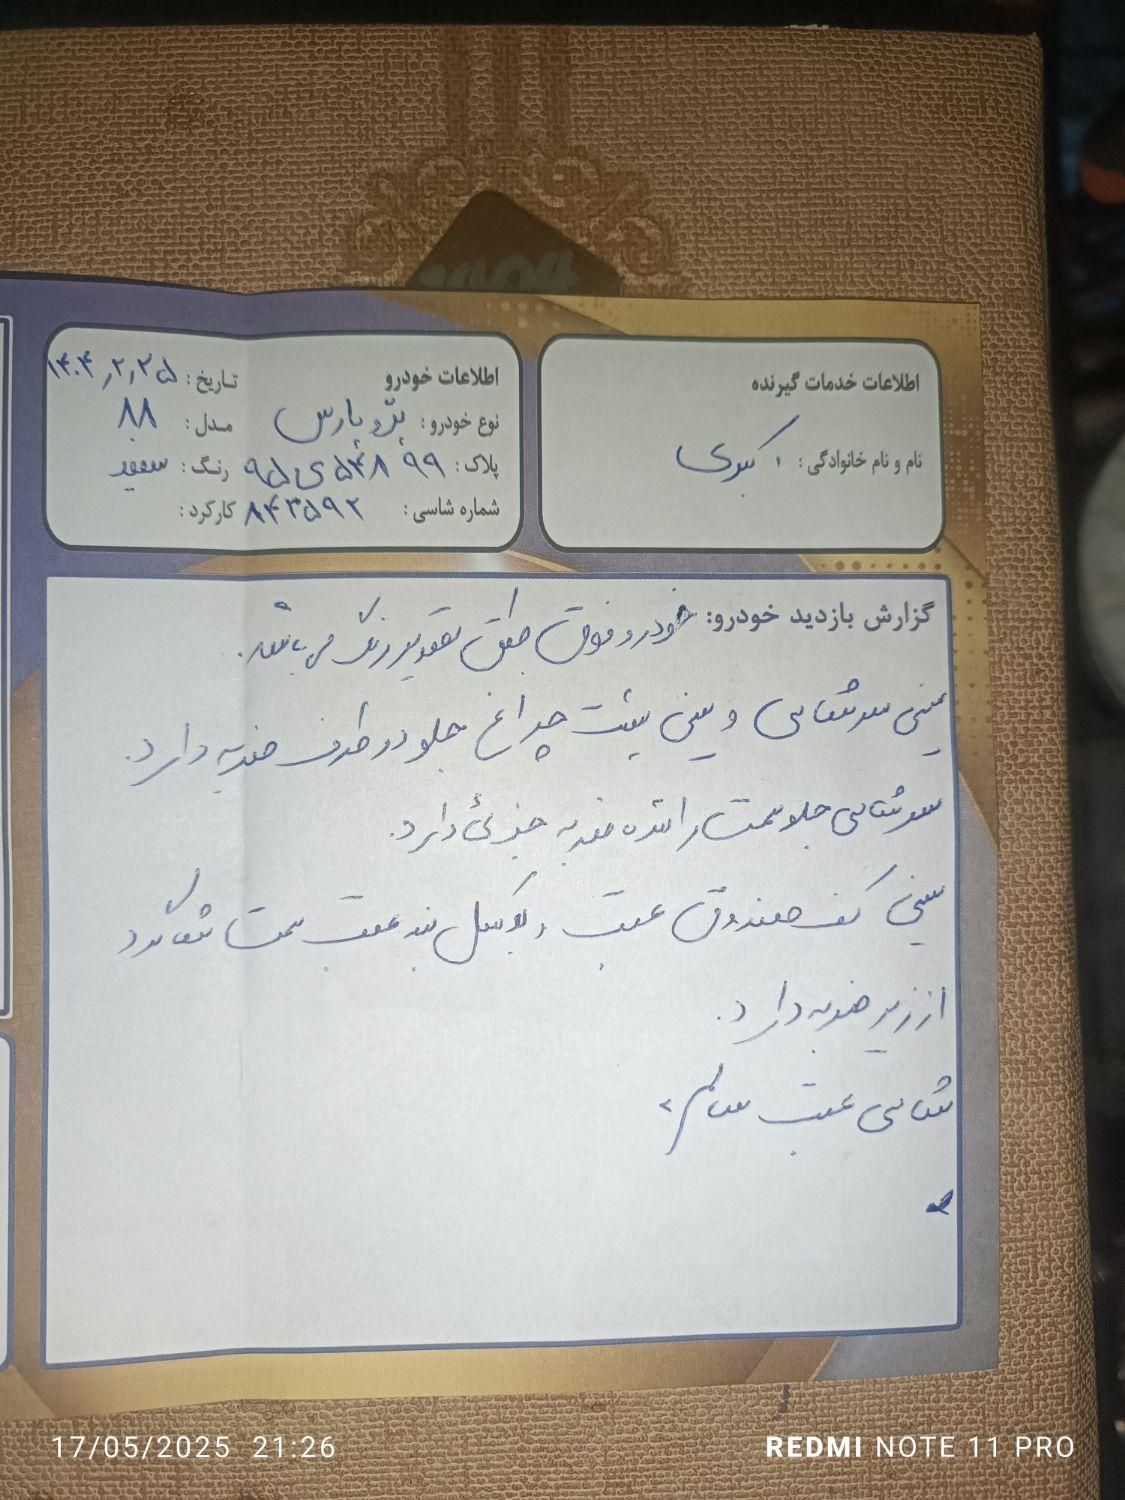 اطلاعات خدمات گیرنده
نام و نام خانوادگی: اکبری
اطلاعات خودرو
تاریخ: ۱۴۰۴,۲,۲۵
نوع خودرو: پژو پارس
مدل: ۸۸
پلاک: ۹۹ ۵۴۸ی۹۵
رنگ: سفید
شماره شاسی: ۸۴۳۵۹۲
کارکرد:
گزارش بازدید خودرو: خودرو فوق طبق تصویر رنگ می باشد.
سینی سرشاسی و سینی پشت چراغ جلو دو طرف ضربه دارد.
سرشاسی جلو سمت راننده ضربه جزئی دارد.
سینی کف صندوق عقب و بکسل بند عقب سمت شاگرد
از زیر ضربه دارد.
شاسی عقب سالم
17/05/2025 21:26
REDMI NOTE 11 PRO